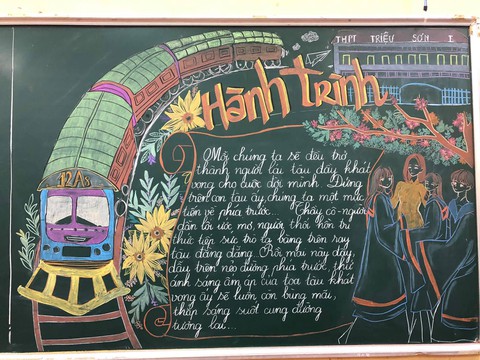 THPT TRIỆU SƠN I
Hành trình
12A3
Mỗi chúng ta sẽ đều trở
thành người lái tàu đầy khát
vọng cho cuộc đời mình. Đứng
trên con tàu ấy, chúng ta một mực
tiến về phía trước... Thầy cô - người
dẫn lối ước mơ, người thổi hồn tri
thức tiếp sức trò ta băng trên ray
tàu đằng đẵng. Rồi mai này đây,
đây trên nẻo đường phía trước, thứ
ánh sáng ấm áp của toa tàu khát
vọng ấy sẽ luôn còn bừng mãi,
thắp sáng suốt cung đường
tương lai...